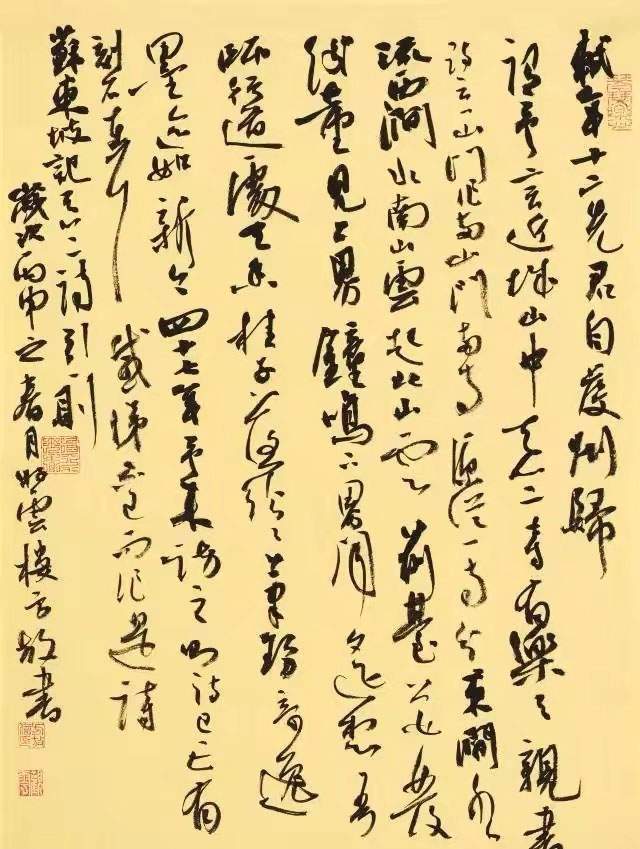 軾年十二先君自虔州歸
謂予言近城山中天竺寺有樂天親書
詩云一山門作兩山門兩寺原從一寺分東澗水
流西澗水南山雲起北山雲前臺花發
後臺見上界鐘鳴下界聞遙想吾
師行道處天香桂子落紛紛筆勢奇逸
墨迹如新今四十七年予來訪之則詩已亡有
刻石在耳感涕不已而作是詩
蘇東坡記天竺詩引一則
歲次丙申之春月雲樓方放書